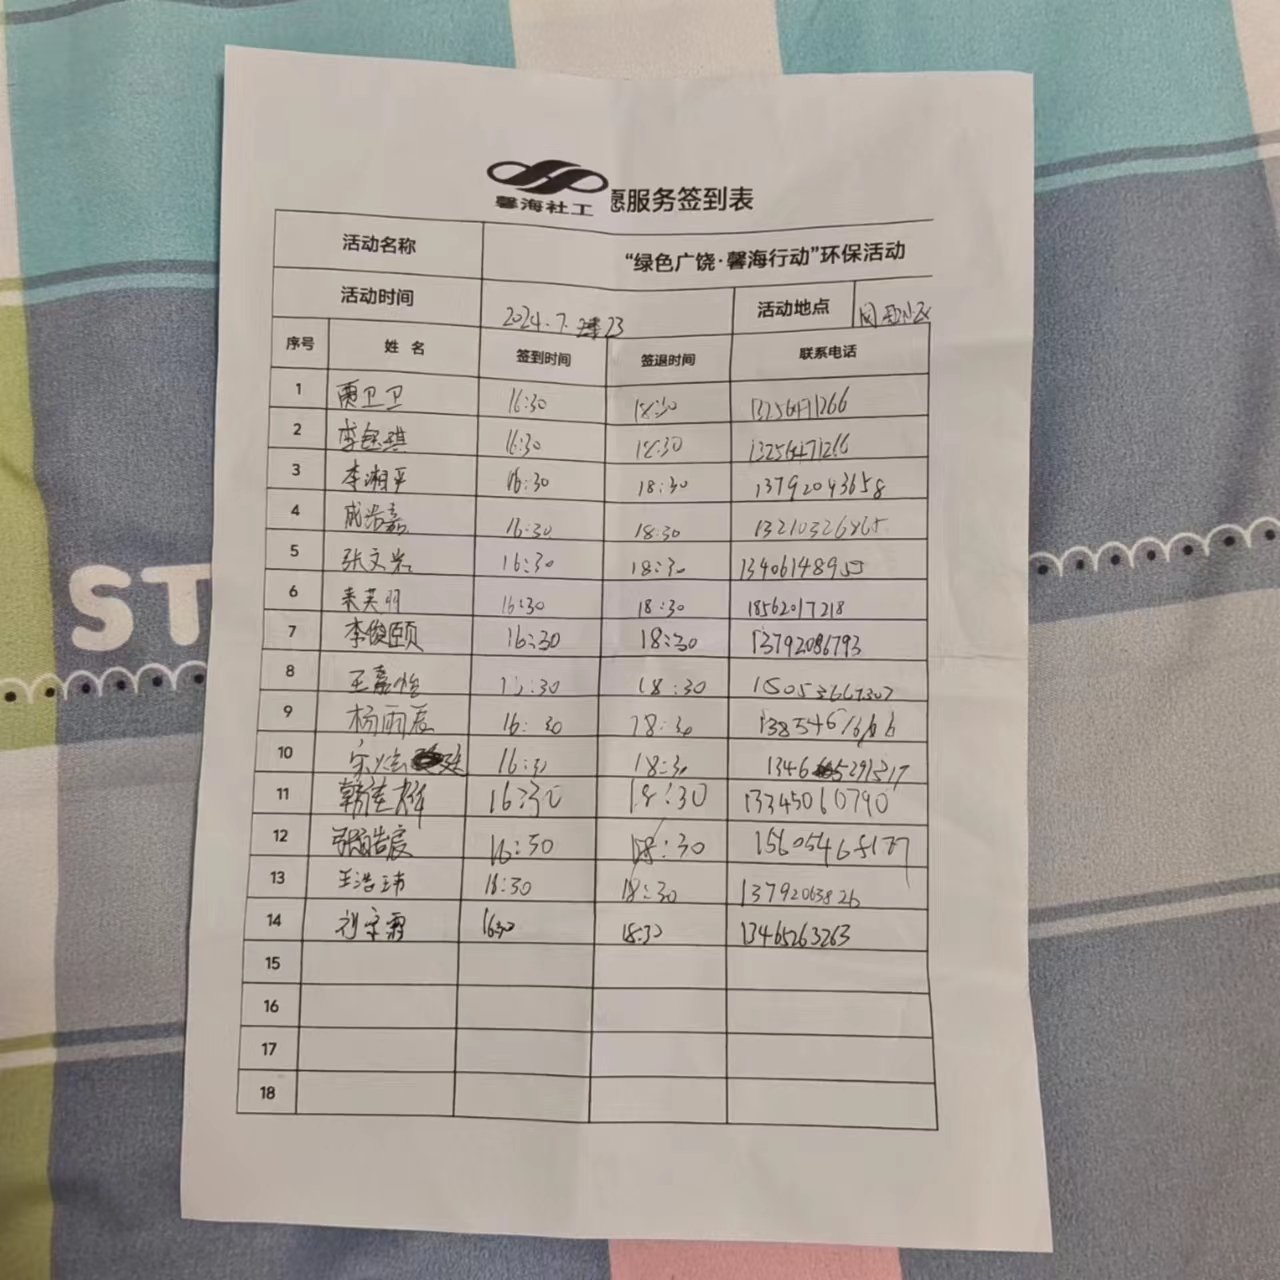 馨海社工
愿服务签到表
活动名称 “绿色广饶·馨海行动”环保活动
活动时间 2024.7. 23 活动地点
序号 姓 名 签到时间 签退时间 联系电话
1 贾卫卫 16:30 18:30 13256471266
2 李钰琪 16:30 18:30 13256471266
3 李湘平 16:30 18:30 13792043658
4 成浩嘉 16:30 18:30 13210326865
5 张文岩 16:30 18:30 13406148955
6 16:30 18:30 18562017218
7 李俊颐 16:30 18:30 13792086793
8 王嘉怡 18:30
9 杨雨辰 16:30 18:30 13854676166
10 宋 16:30 18:30
11 韩佳祥 16:30 18:30 13345060790
12 张皓宸 16:30 18:30
13 王浩玮 16:30 18:30 1379206382b
14 刘宗霖 16:30 18:30 13465263263
15
16
17
18
ST